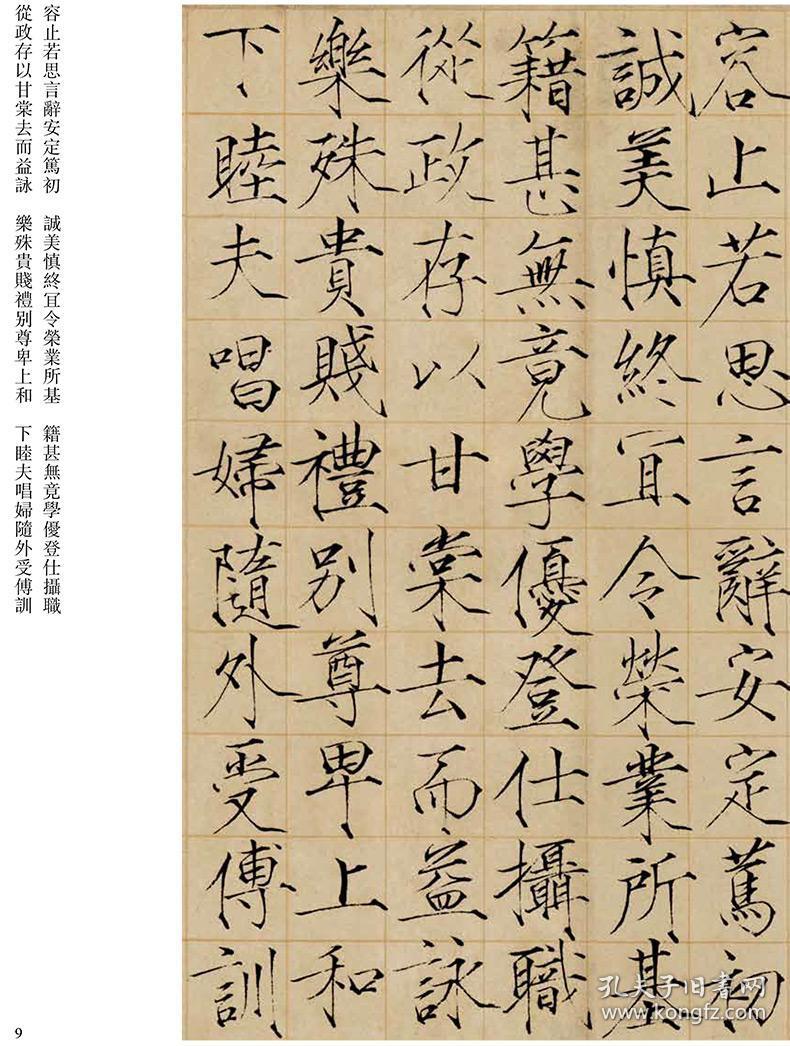 容止若思言辭安定篤初
誠美慎終宜令榮業所基
籍甚無竟學優登仕攝職
從政存以甘棠去而益詠
樂殊貴賤禮别尊卑上和
下睦夫唱婦隨外受傅訓
容止若思言辭安定篤初　誠美慎終宜令榮業所基　籍甚無竟學優登仕攝職
從政存以甘棠去而益詠　樂殊貴賤禮别尊卑上和　下睦夫唱婦隨外受傅訓
9
孔夫子旧书网
www.kongfz.com